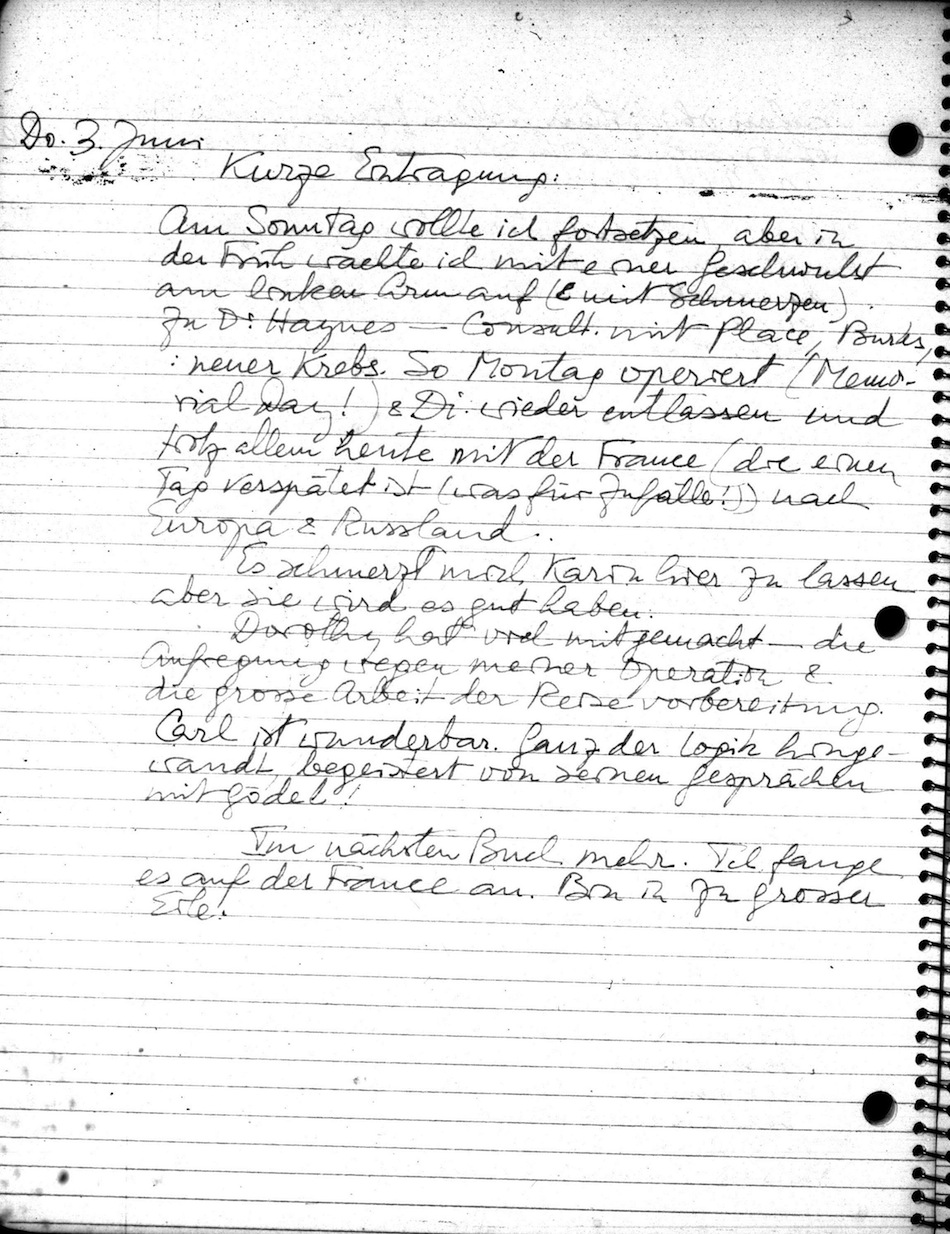 Do. 3. Juni
Kurze Eintragung:
Am Sonntag wollte ich fortsetzen, aber in
der Früh wachte ich mit einer Geschwulst
am linken Arm auf (& mit Schmerzen).
Zu Dr Haynes — Consult. mit Place,
: neuer Krebs. So Montag operiert (Memo-
rial Day!) & Di. wieder entlassen und
trotz allem heute mit der France (die einen
Tag verspätet ist (was für Zufälle!)) nach
Europa & Russland..
Es schmerzt mich, Karin hier zu lassen
aber sie wird es gut haben.
Dorothy hat viel mitgemacht — die
Aufregung wegen meiner Operation &
die grosse Arbeit der Reisevorbereitung.
Carl ist wunderbar. Ganz der Logik hinge-
wandt, begeistert von seinen Gesprächen
mit Gödel!
Im nächsten Buch mehr. Ich fange
es auf der France an. Bin in zu grosser
Eile.